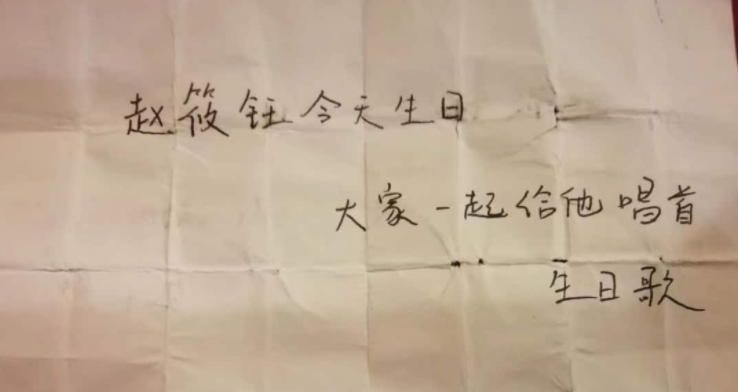 赵筱钰今天生日
大家一起给他唱首
生日歌